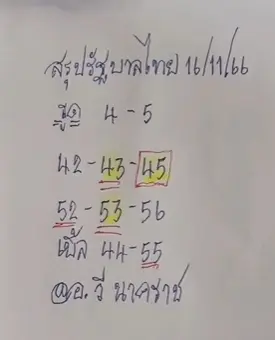 สรุปรัฐบาลไทย 16/11/66
รูด 4-5
42-43-45
52-53-56
เบิ้ล 44-55
อ.วี นาคราช